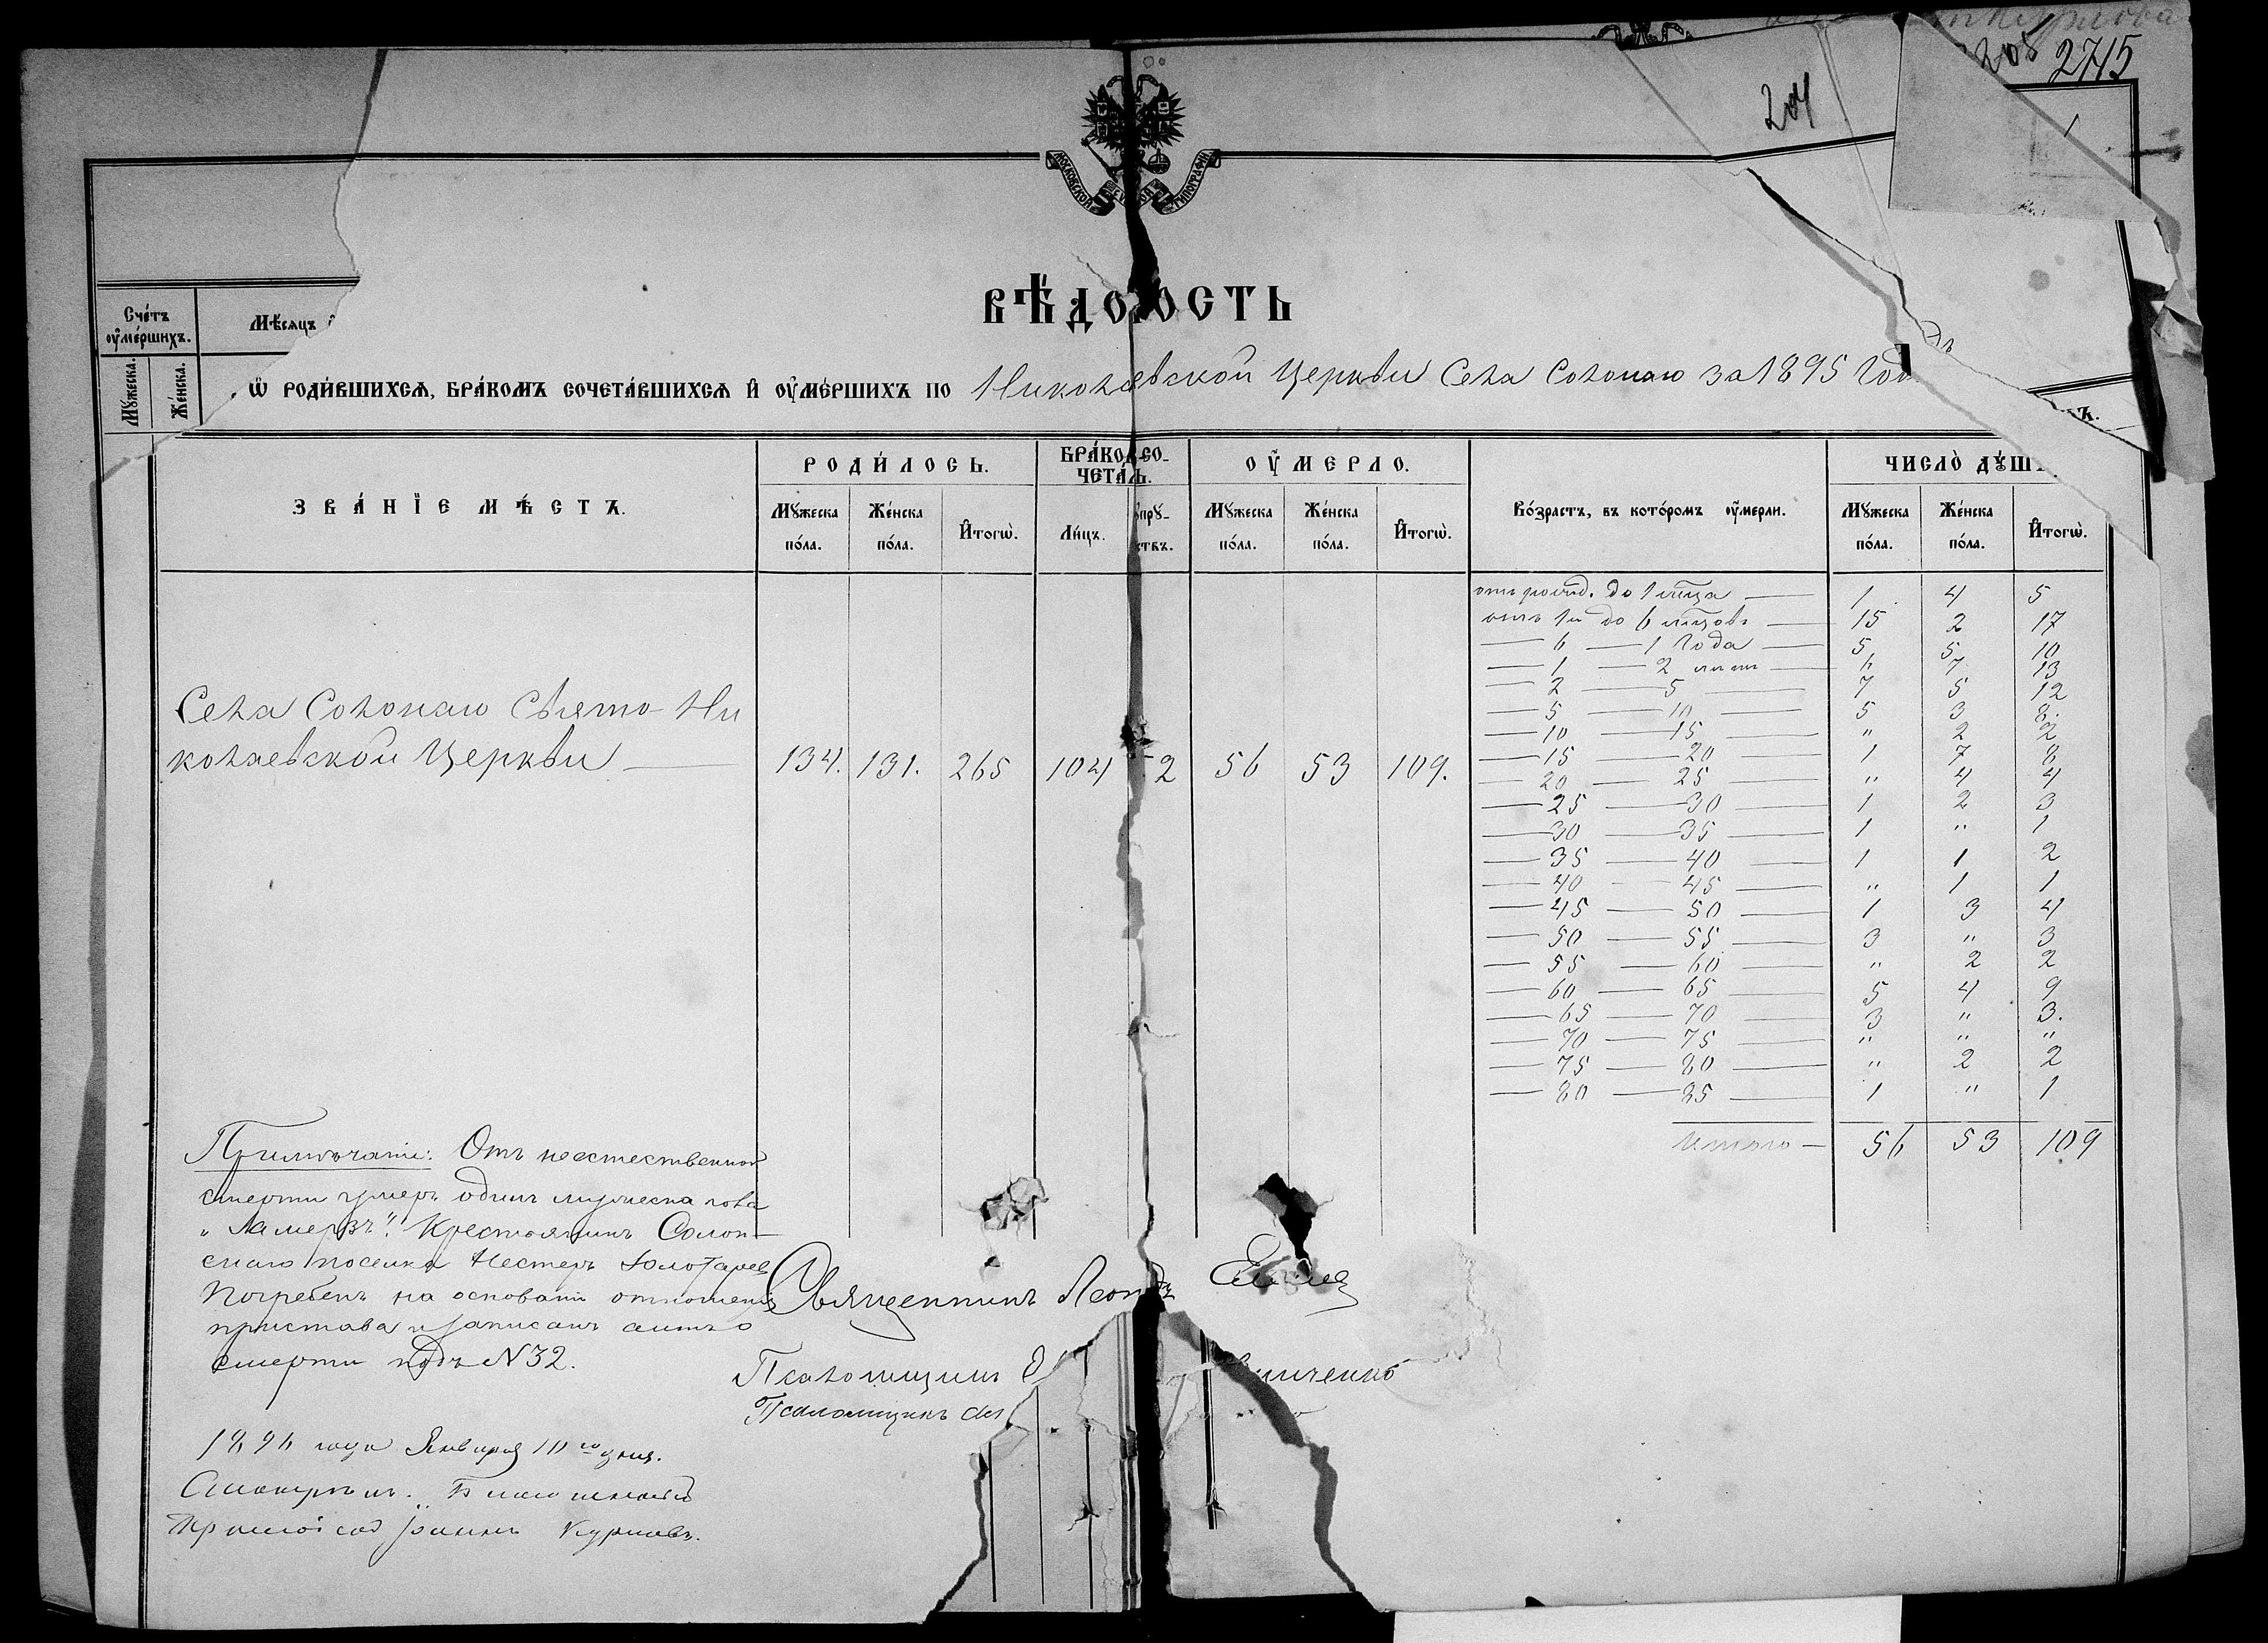 2715
204
МОСКОВСКОЙ СѴНОД ТИПОГРАФІИ
ВѢДОМОСТЬ
Ѡ РОДИВШИХСЯ, БРАКОМЪ СОЧЕТАВШИХСЯ И ОУМЕРШИХЪ ПО Николаевской Церкви Села за 1895 Годъ
Счетъ оумершихъ.
Мѣсяцъ
Мужеска.
Женска.
ЗВАНІЕ МѢСТЪ.
РОДИЛОСЬ.
БРАКОСО-
ЧЕТАЛ.
ОУМЕРЛО.
Возрастъ, въ которомъ оумерли.
ЧИСЛО ДУШЪ
Мужеска пола.
Женска пола.
Итогѡ.
Лицъ.
Мужеска пола.
Женска пола.
Итогѡ.
Мужеска пола.
Женска пола.
Итогѡ.
отъ рожд. до 1 мѣца — 1 4 5
отъ 1м до 6 мѣцовъ — 15 2 17
— 6 — 1 Года — 5 5 10
— 1 — 2 лѣтъ — 6 7 13
— 2 — 5 — 7 5 12
— 5 — 10 — 5 3 8.
— 10 — 15 — " 2 2
— 15 — 20 — 1 7 8
— 20 — 25 — " 4 4
— 25 — 30 — 1 2 3
— 30 — 35 — 1 " 1
— 35 — 40 — 1 1 2
— 40 — 45 — " 1 1
— 45 — 50 — 1 3 4
— 50 — 55 — 3 " 3
— 55 — 60 — " 2 2
— 60 — 65 — 5 4 9
— 65 — 70 — 3 " 3.
— 70 — 75 — " " "
— 75 — 80 — " 2 2
— 80 — 85 — 1 " 1
Итого — 56 53 109
Села Свято-Ни
колаевской Церкви — 134. 131. 265 104 2 56 53 109.
Примѣчаніе: Отъ неестественной
смерти умеръ одинъ мужеска пола
"Замерзъ". Крестьянинъ Солон-
скаго поселка Нестеръ Золотарев
Погребенъ на основаніи отношенія
пристава и записанъ актъ о
смерти подъ N 32.
Священникъ
Псаломщикъ
Псаломщикъ
1896 года Января 10го дня.
Протоіерей Іоаннъ